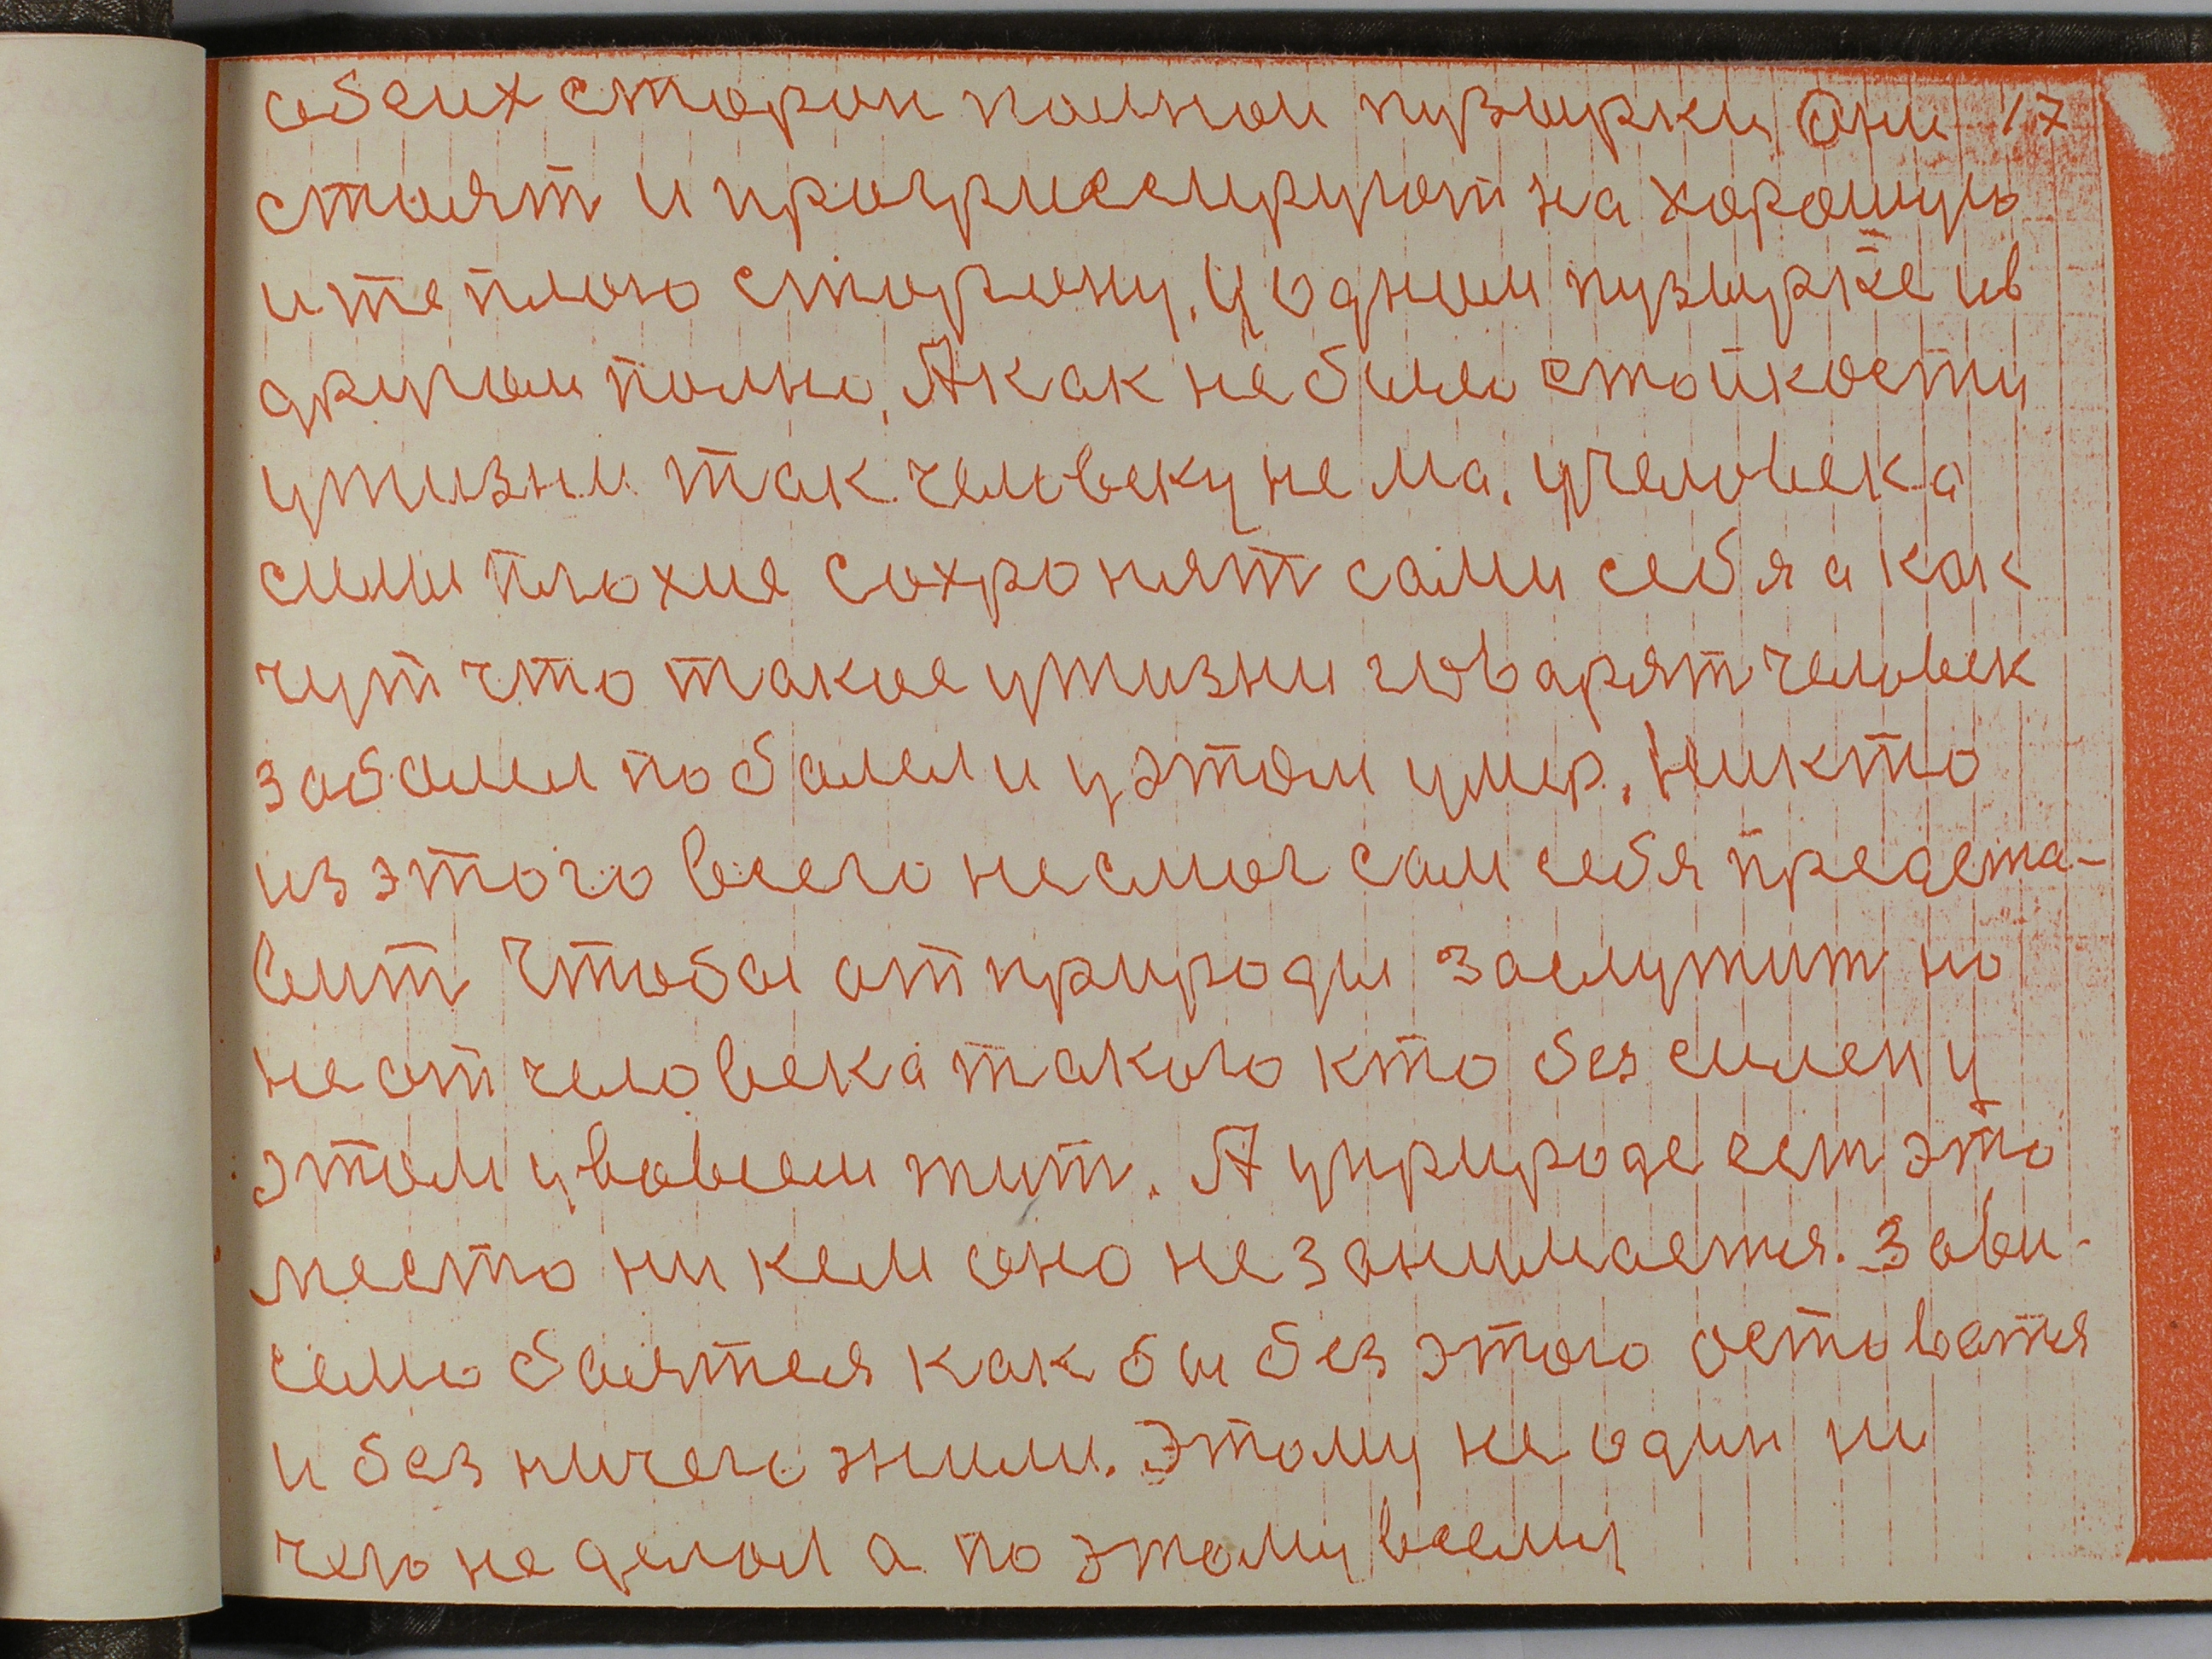 обеих сторон полнои пузырки Они 17
стоят и прогриссируют на хорошую
и теплою сторону. У одном пузырке ив
другом полно. А как не было стойкости
ужизни так человеку нема. Учеловека
силы плохие сохронят сами себя а как
чут что такое ужизни говарят человек
заболел поболел и уэтом умер. Никто
из этого всего не смог сам себя предста-
вит Чтобы от природы заслужит но
не от человека такого кто без силен у
этом увовсем жит. А уприроде ест это
место ни кем оно не занимается. Зави-
семо боятся как бы без этого остоватся
и без ничего жили. Этому не один ни
чего не делал а по этому всемы